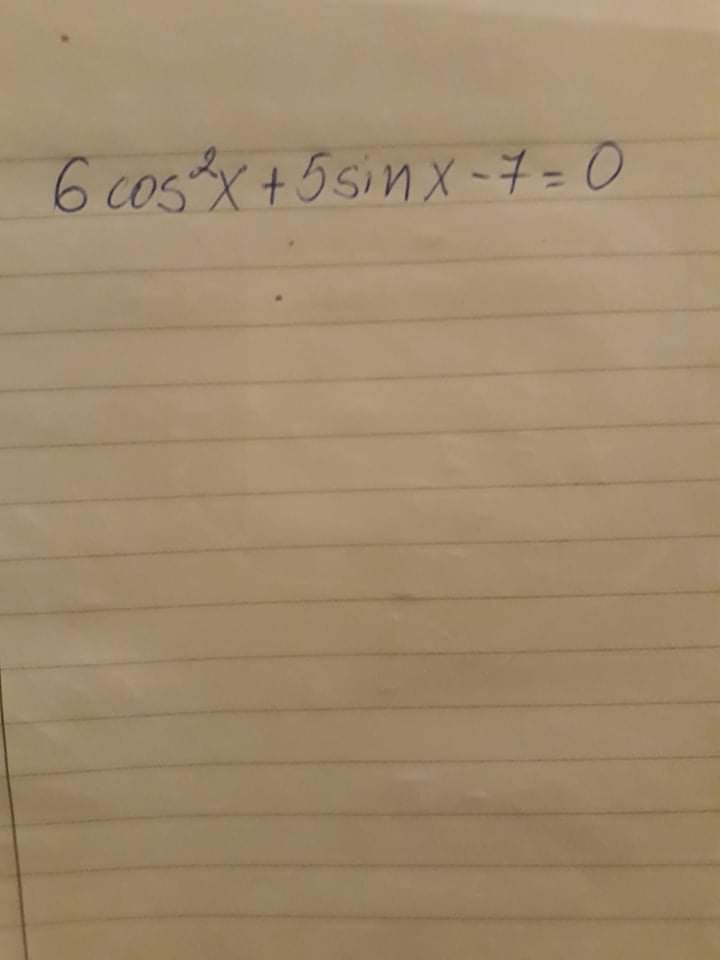 6 cos²x + 5 sin x - 7 = 0